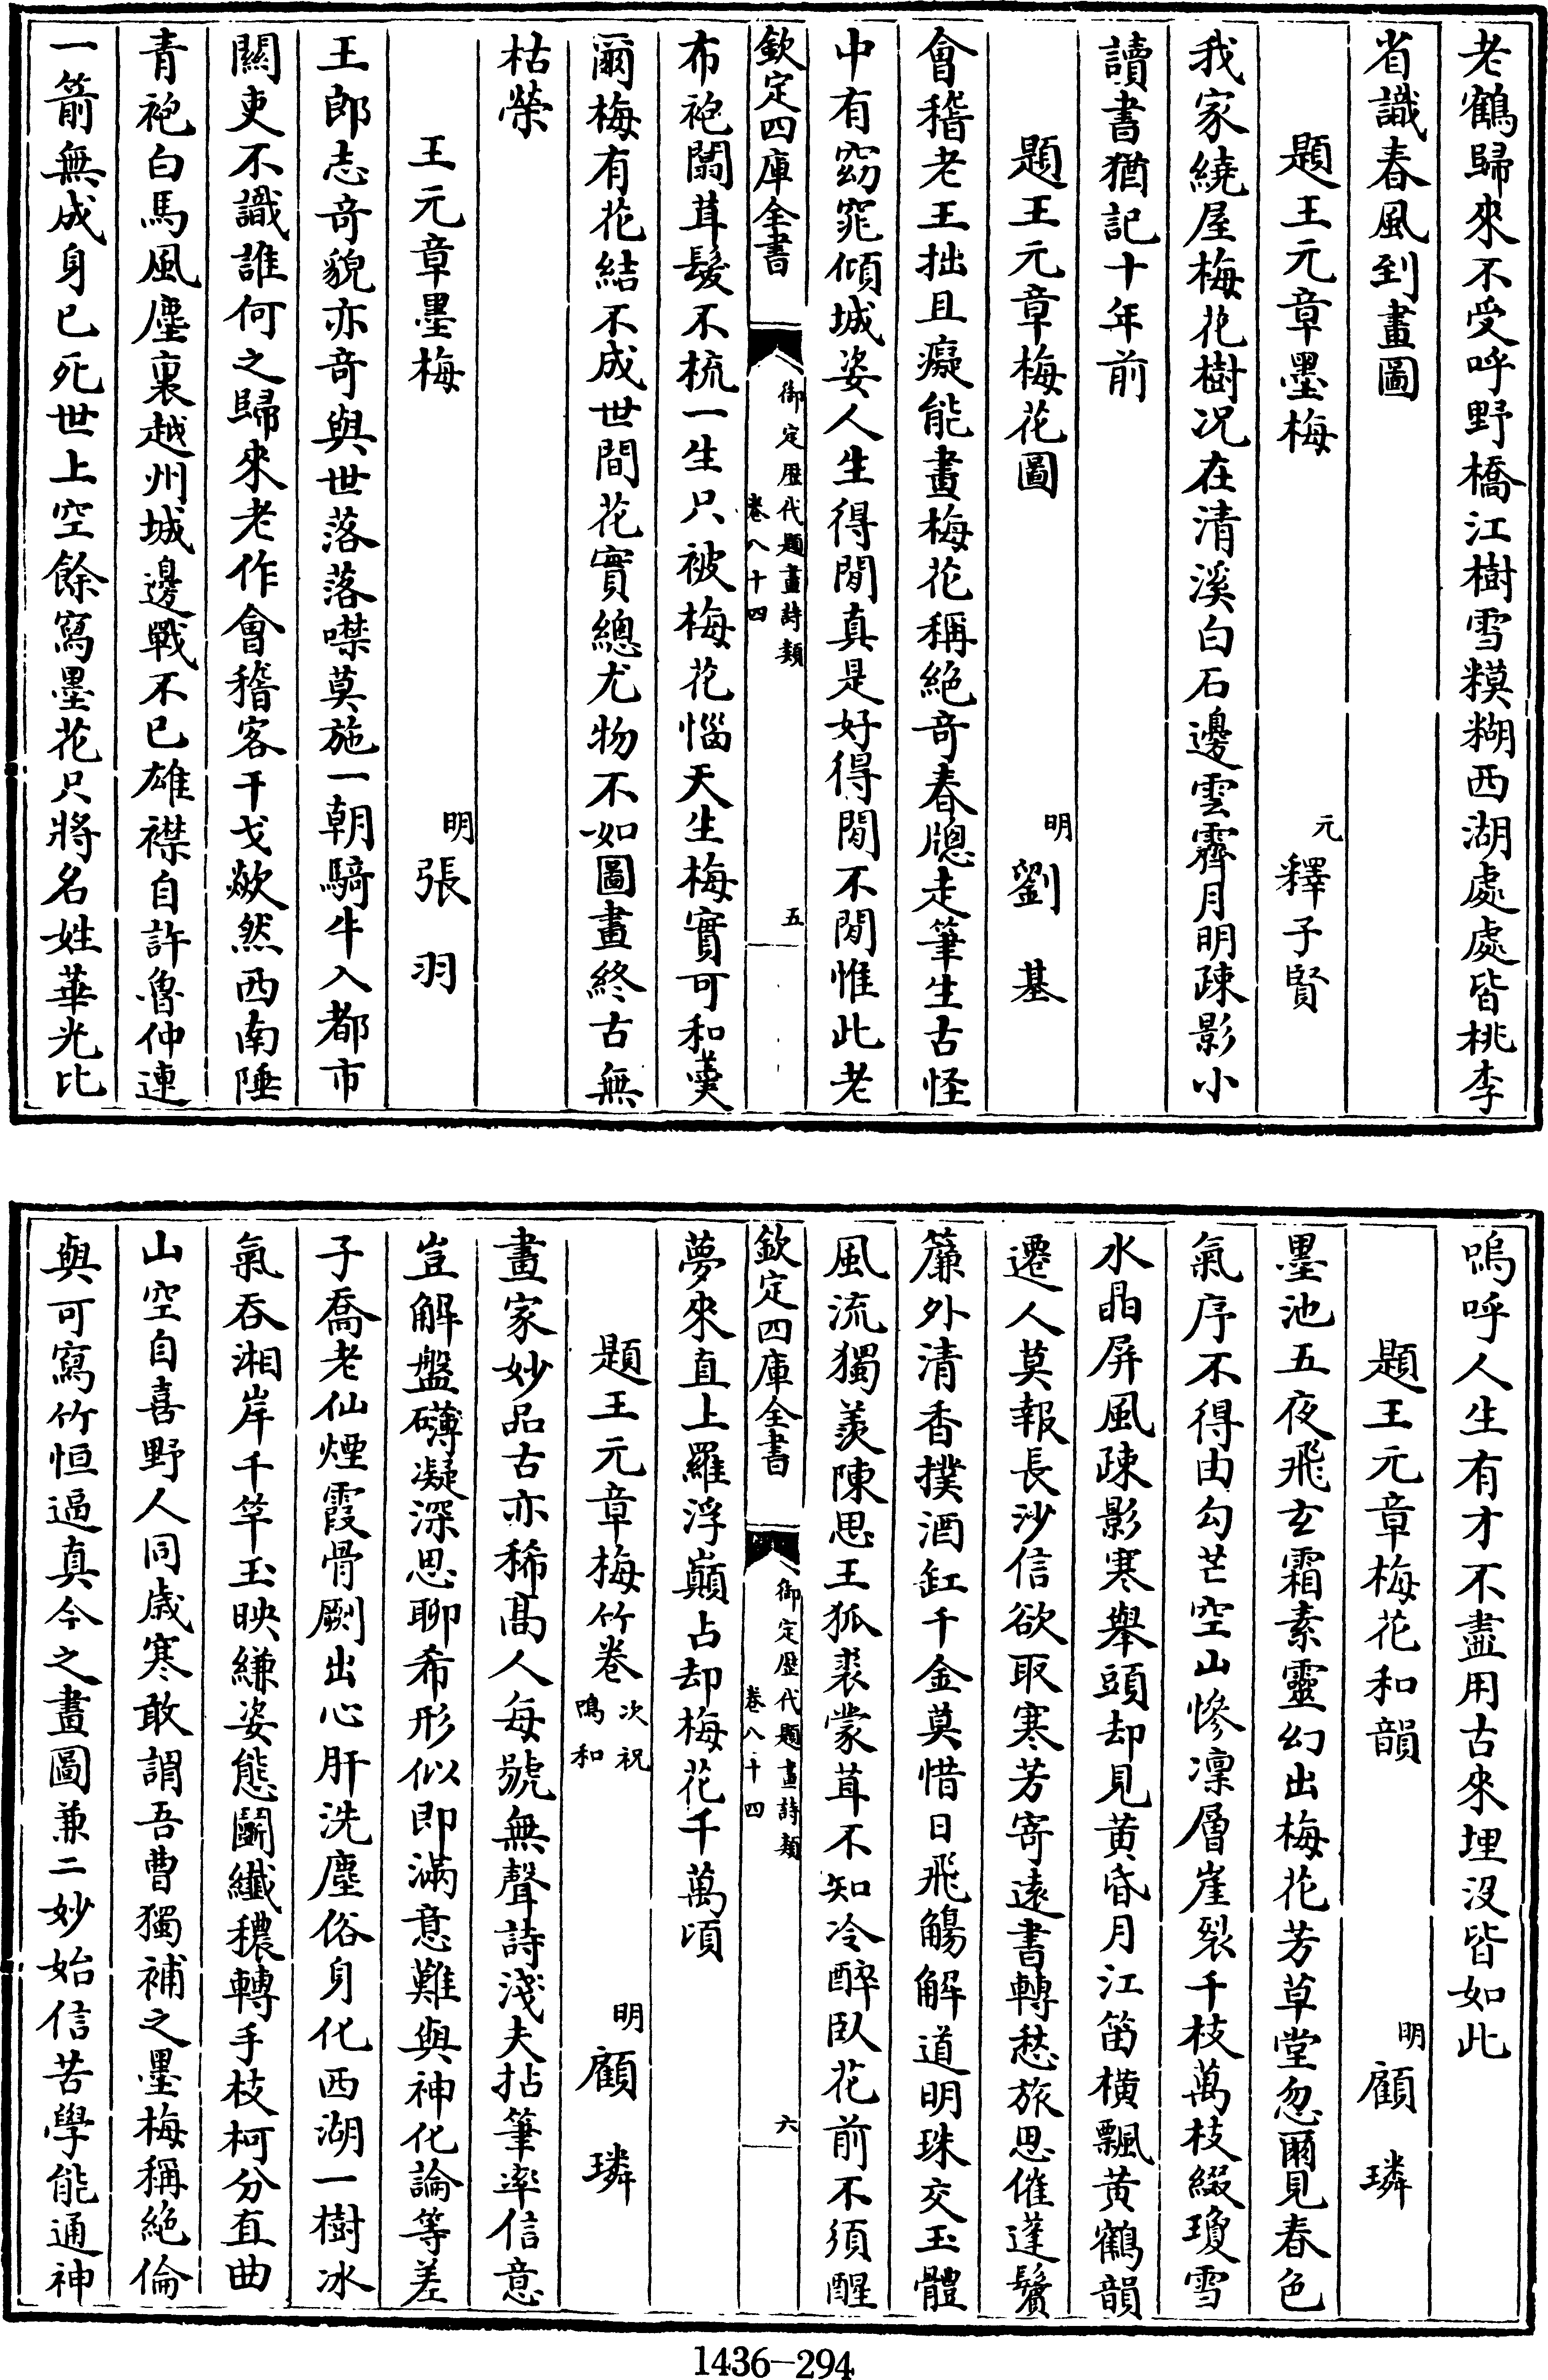 老鶴歸來不受呼野橋江樹雪糢糊西湖處處皆桃李
省識春風到畫圖
題王元章墨梅
元
釋子賢
我家繞屋梅花樹况在清溪白石邊雲霽月明疎影小
讀書猶記十年前
題王元章梅花圖
明
劉基
會稽老王拙且癡能畫梅花稱絶奇春牕走筆生古怪
中有窈窕傾城姿人生得閒真是好得閒不閒惟此老
欽定四庫全書
御定歴代題畫詩類
卷八十四
五
布袍闒茸髮不梳一生只被梅花惱天生梅實可和羹
爾梅有花結不成世間花實總尤物不如圖畫終古無
枯榮
王元章墨梅
明
張羽
王郎志竒貌亦竒與世落落噤莫施一朝騎牛入都市
關吏不識誰何之歸來老作會稽客干戈歘然西南陲
青袍白馬風塵裏越州城邊戰不已雄襟自許魯仲連
一箭無成身已死世上空餘寫墨花只將名姓華光比
嗚呼人生有才不盡用古來埋沒皆如此
題王元章梅花和韻
明
顧璘
墨池五夜飛玄霜素靈幻出梅花芳草堂忽爾見春色
氣序不得由勾芒空山慘凛層崖裂千枝萬枝綴瓊雪
水晶屏風疎影寒舉頭却見黄昏月江笛横飄黄鶴韻
遷人莫報長沙信欲取寒芳寄遠書轉愁旅思催蓬鬢
簾外清香撲酒缸千金莫惜日飛觴解道明珠交玉體
風流獨羨陳思王狐裘蒙茸不知冷醉臥花前不須醒
欽定四庫全書
御定歴代題畫詩類
卷八十四
六
夢來直上羅浮巔占却梅花千萬頃
題王元章梅竹卷
次祝
鳴和
明
顧璘
畫家妙品古亦稀髙人每號無聲詩淺夫拈筆率信意
豈解盤礴凝深思聊希形似即滿意難與神化論等差
子喬老仙煙霞骨劂出心肝洗塵俗身化西湖一樹冰
氣吞湘岸千竿玉映縑姿態鬭纎穠轉手枝柯分直曲
山空自喜野人同歲寒敢謂吾曹獨補之墨梅稱絶倫
與可寫竹恒逼真今之畫圖兼二妙始信苦學能通神
1436-294